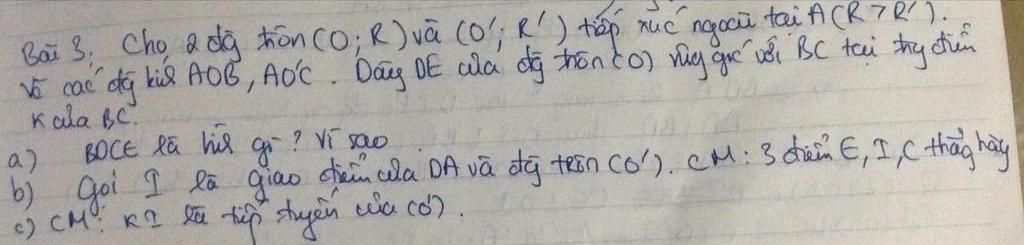 Bài 3: Cho 2 đg tròn (O; R) và (O'; R') tiếp xúc ngoài tại A (R > R').
Vẽ các đg kíh AOB, AO'C. Dây DE của đg tròn (O) vuôg góc với BC tại trg điểm
K của BC.
a) BDCE là hìh gì? Vì sao
b) Gọi I là giao điểm của DA và đg tròn (O'). CM: 3 điểm E, I, C thẳg hàg
c) CM: KI là tiếp tuyến của (O').